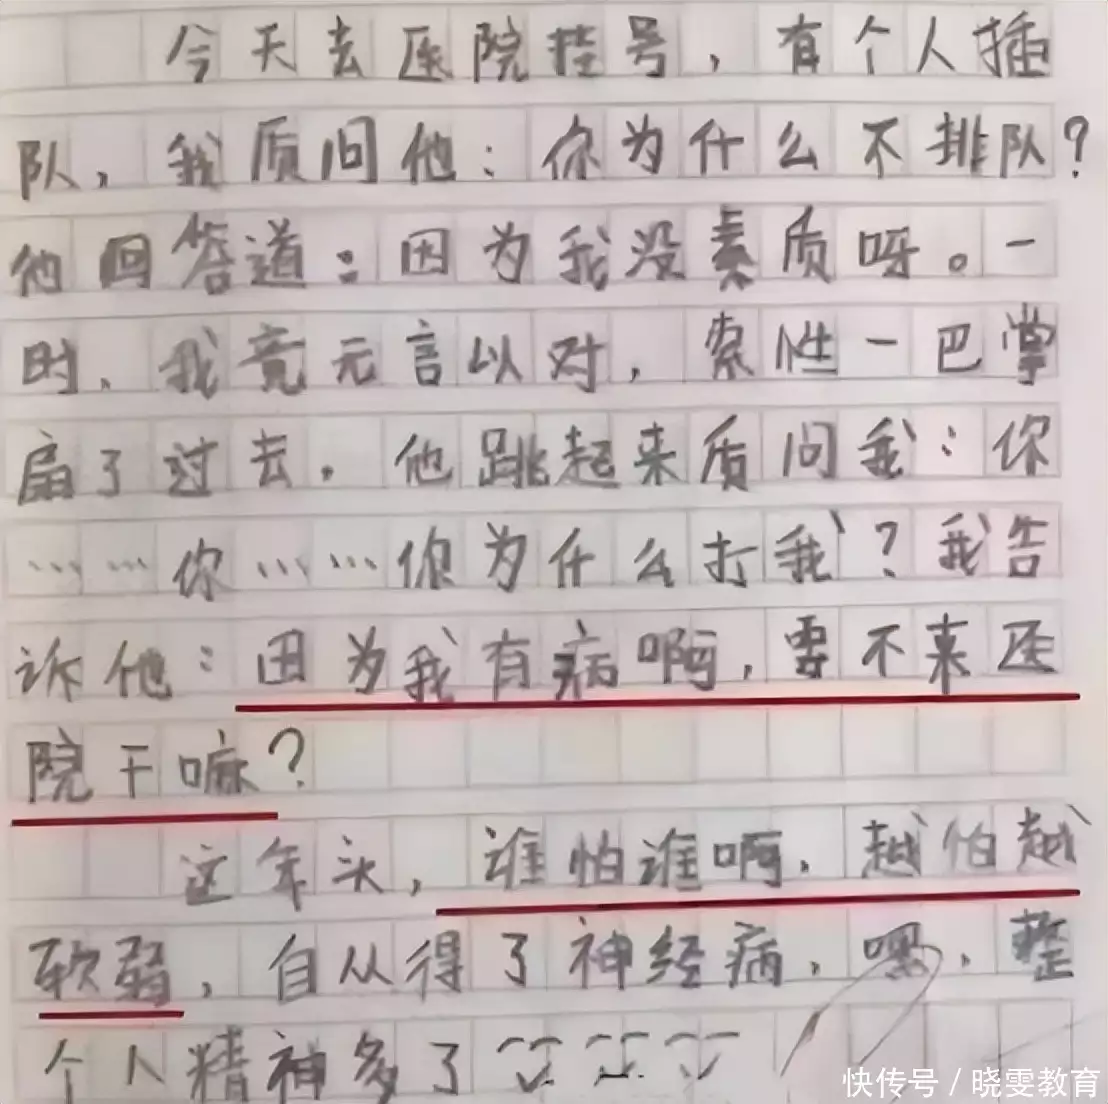 今天去医院挂号，有个人插
队，我质问他：你为什么不排队？
他回答道：因为我没素质呀。一
时，我竟无言以对，索性一巴掌
扇了过去。他跳起来质问我：你
……你……你为什么打我？我告
诉他：因为我有病啊，要不来医
院干嘛？
这年头，谁怕谁啊，越怕越
软弱，自从得了神经病，嘿，整
个人精神多了
快传号／晓雯教育